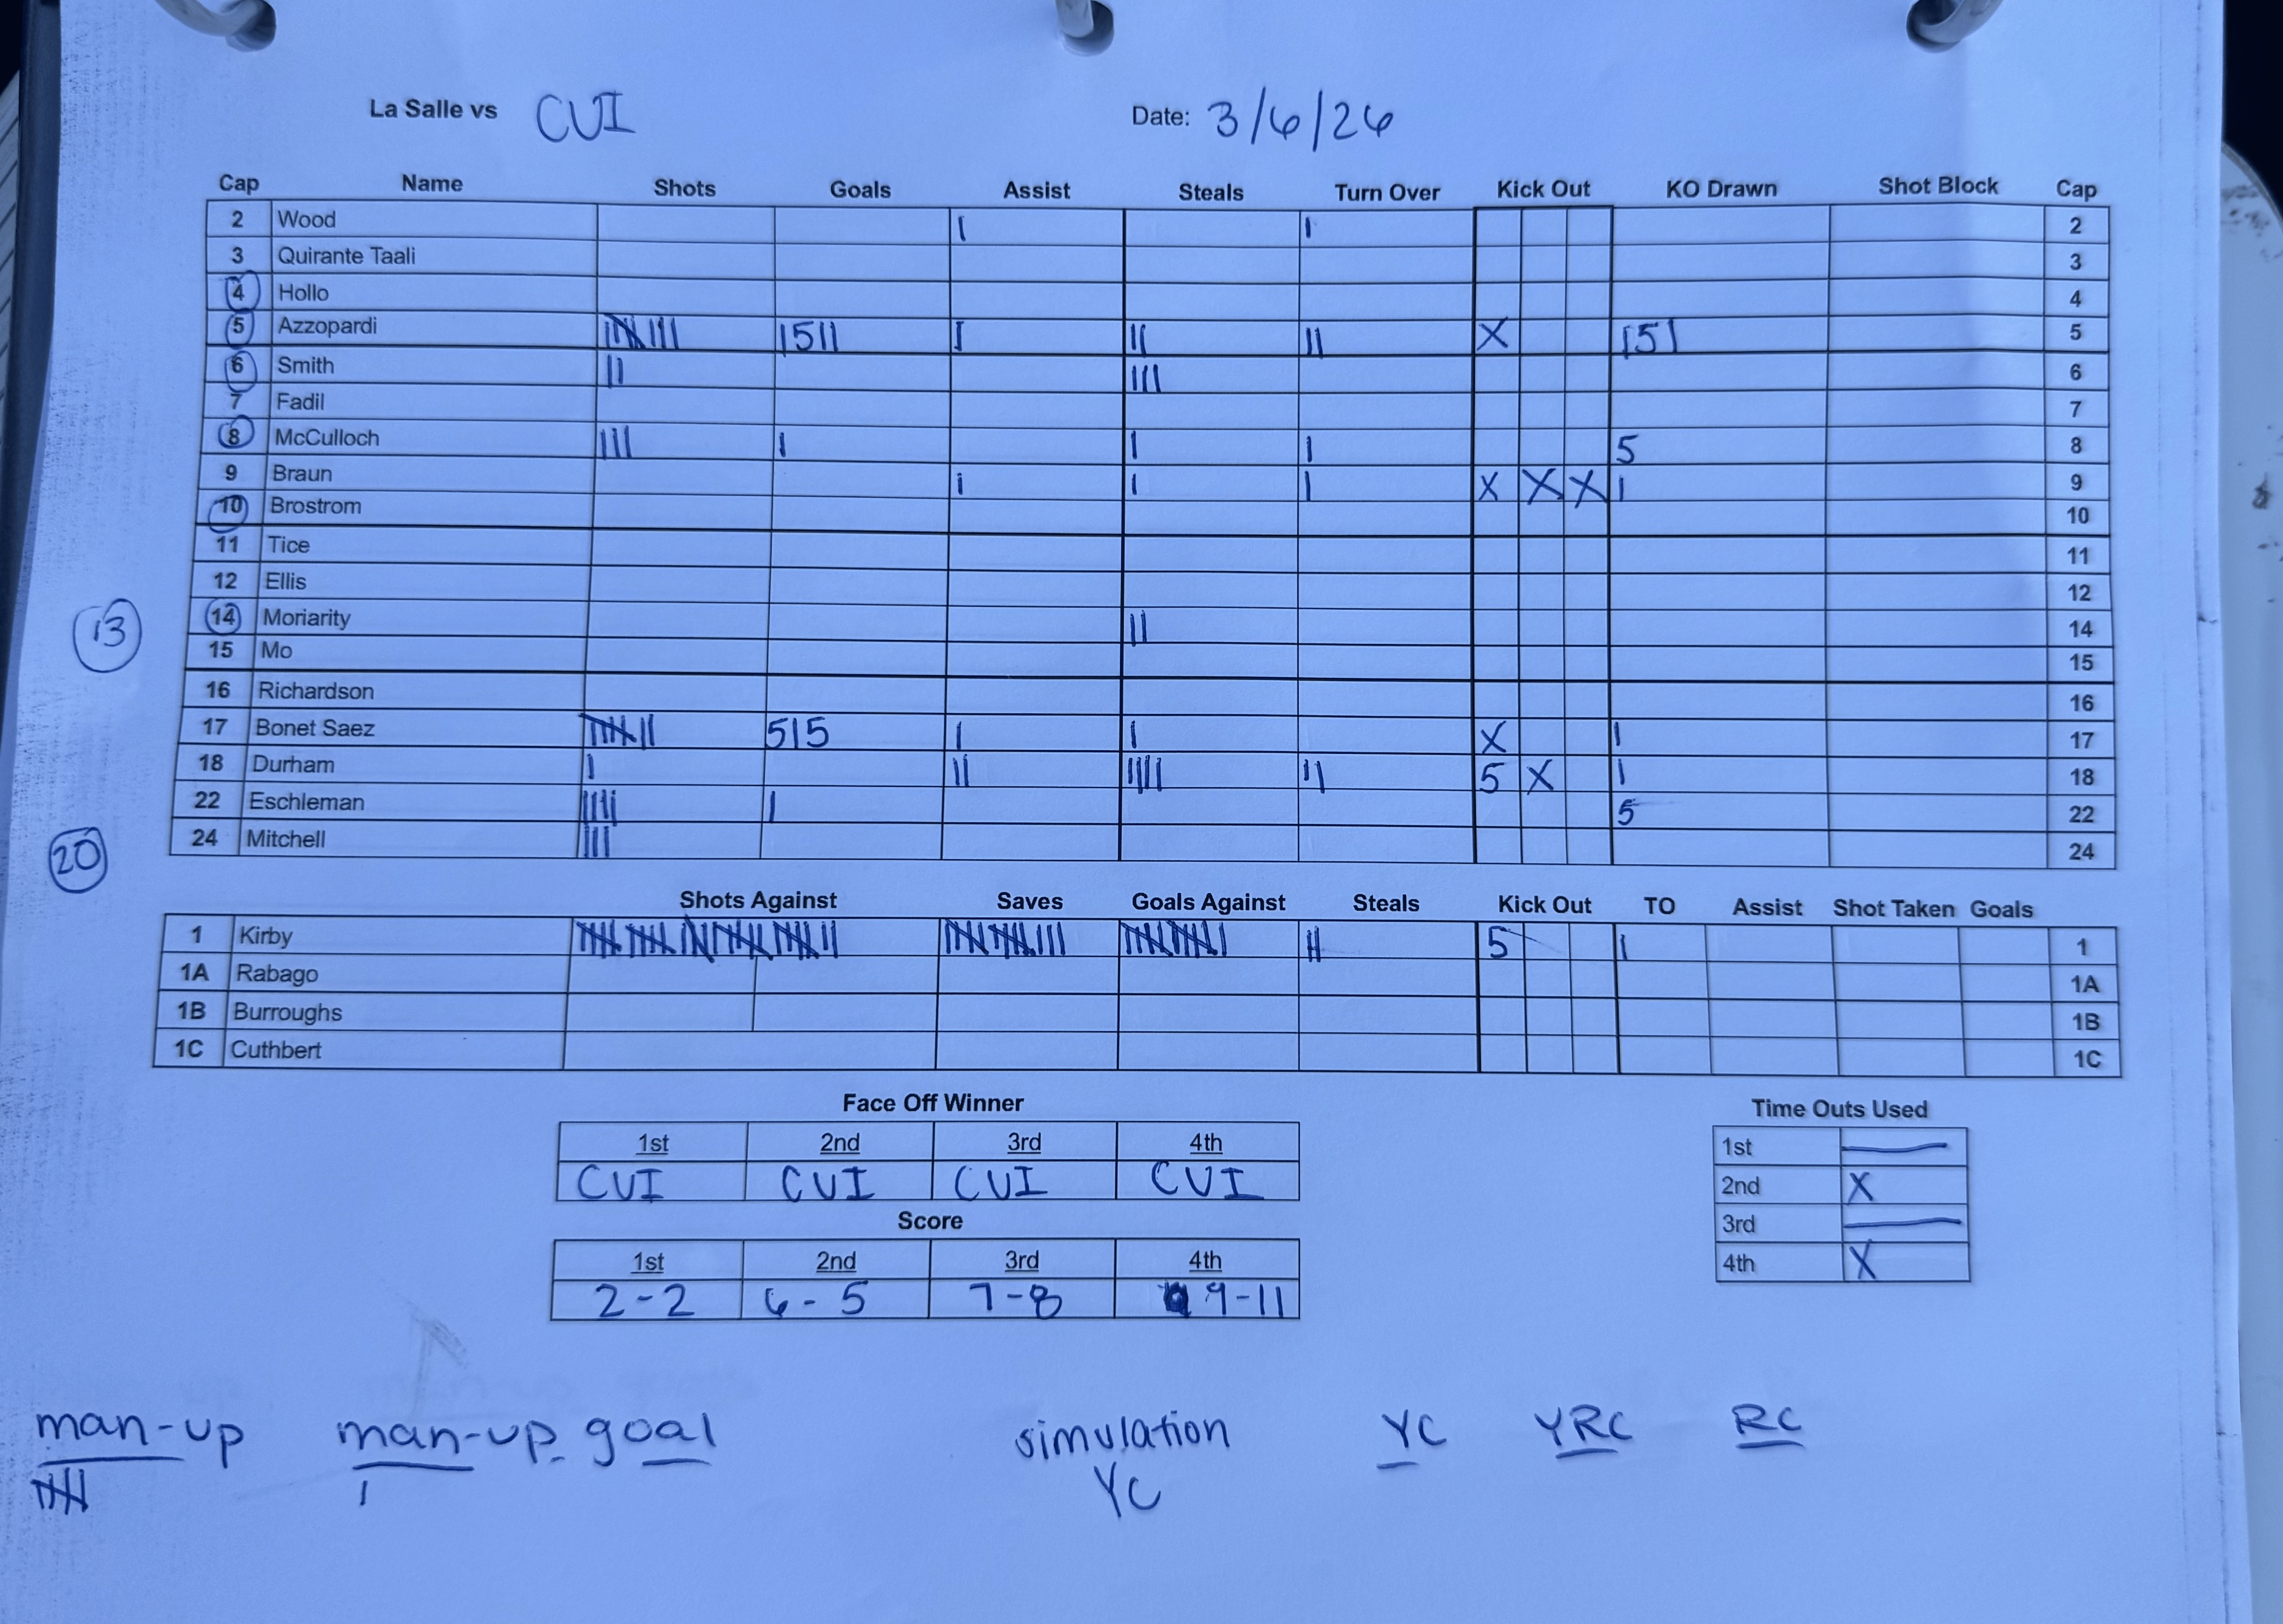 La Salle vs CUI Date: 3/6/26
Cap Name Shots Goals Assist Steals Turn Over Kick Out KO Drawn Shot Block Cap
2 Wood | | 2
3 Quirante Taali 3
4 Hollo 4
5 Azzopardi |||| ||| |5|| | || || X |5| 5
6 Smith || ||| 6
7 Fadil 7
8 McCulloch ||| | | | 5 8
9 Braun | | | X X X | 9
10 Brostrom 10
11 Tice 11
12 Ellis 12
13
14 Moriarity || 14
15 Mo 15
16 Richardson 16
17 Bonet Saez |||| || 5|5 | | X | 17
18 Durham | || |||| || 5 X | 18
22 Eschleman |||| | 5 22
20
24 Mitchell ||| 24
Shots Against Saves Goals Against Steals Kick Out TO Assist Shot Taken Goals
1 Kirby || 5 | 1
1A Rabago 1A
1B Burroughs 1B
1C Cuthbert 1C
Face Off Winner
1st 2nd 3rd 4th
CUI CUI CUI CUI
Score
1st 2nd 3rd 4th
2-2 6-5 7-8 9-11
Time Outs Used
1st —
2nd X
3rd —
4th X
man-up man-up goal simulation YC YRC RC
| YC